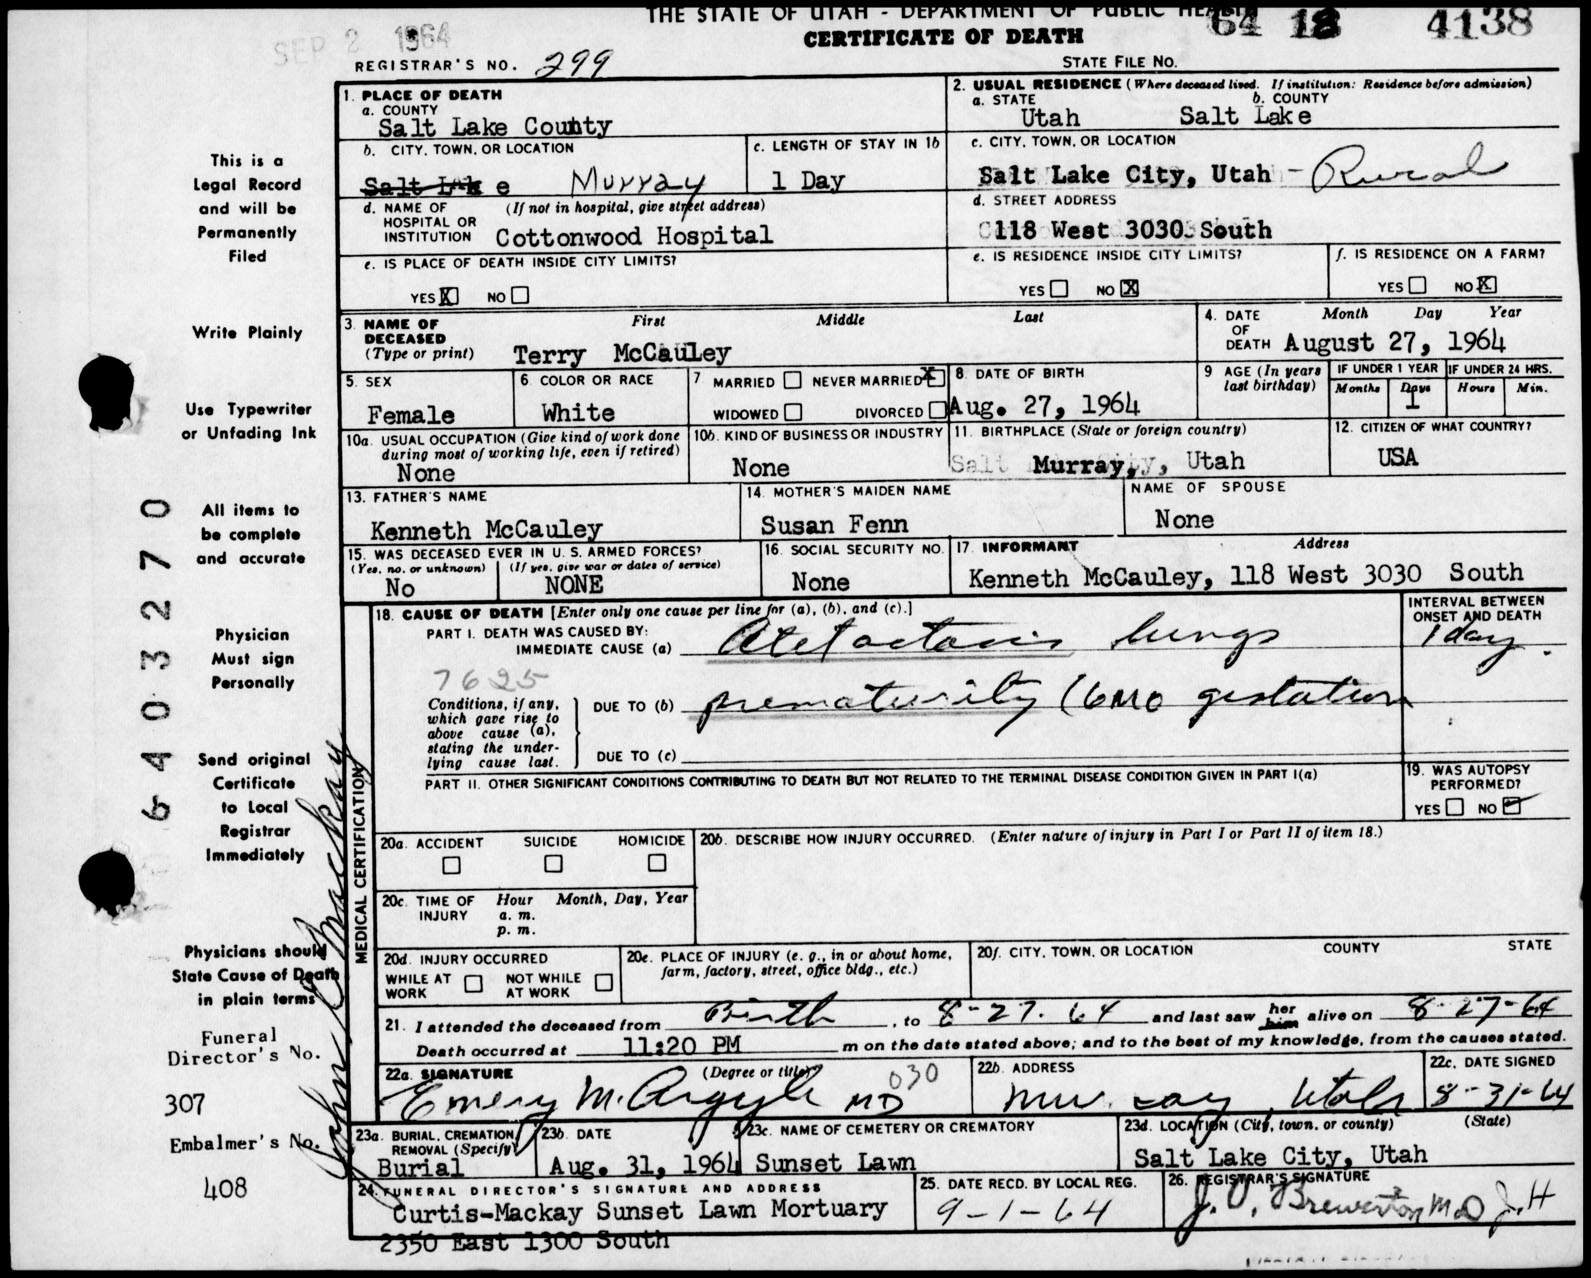 THE STATE OF UTAH - DEPARTMENT OF PUBLIC HEALTH
64 18 4138
SEP 2 1964
CERTIFICATE OF DEATH
REGISTRAR'S NO. 299
STATE FILE NO.
1. PLACE OF DEATH
a. COUNTY
Salt Lake County
2. USUAL RESIDENCE (Where deceased lived. If institution: Residence before admission)
a. STATE
Utah
b. COUNTY
Salt Lake
b. CITY, TOWN, OR LOCATION
Salt Lake Murray
c. LENGTH OF STAY IN 1b
1 Day
c. CITY, TOWN, OR LOCATION
Salt Lake City, Utah - Rural
d. NAME OF HOSPITAL OR INSTITUTION
(If not in hospital, give street address)
Cottonwood Hospital
d. STREET ADDRESS
118 West 3030 South
e. IS PLACE OF DEATH INSIDE CITY LIMITS?
YES X NO
e. IS RESIDENCE INSIDE CITY LIMITS?
YES NO X
f. IS RESIDENCE ON A FARM?
YES NO X
3. NAME OF DECEASED
(Type or print)
First Middle Last
Terry McCauley
4. DATE OF DEATH
Month Day Year
August 27, 1964
5. SEX
Female
6. COLOR OR RACE
White
7 MARRIED NEVER MARRIED X
WIDOWED DIVORCED
8 DATE OF BIRTH
Aug. 27, 1964
9 AGE (In years last birthday)
IF UNDER 1 YEAR
Months Days
1
IF UNDER 24 HRS.
Hours Min.
10a. USUAL OCCUPATION (Give kind of work done during most of working life, even if retired)
None
10b. KIND OF BUSINESS OR INDUSTRY
None
11. BIRTHPLACE (State or foreign country)
Murray, Utah
12. CITIZEN OF WHAT COUNTRY?
USA
13. FATHER'S NAME
Kenneth McCauley
14. MOTHER'S MAIDEN NAME
Susan Fenn
NAME OF SPOUSE
None
15. WAS DECEASED EVER IN U. S. ARMED FORCES?
(Yes, no, or unknown) (If yes, give war or dates of service)
No NONE
16. SOCIAL SECURITY NO.
None
17. INFORMANT Address
Kenneth McCauley, 118 West 3030 South
MEDICAL CERTIFICATION
18. CAUSE OF DEATH [Enter only one cause per line for (a), (b), and (c).]
PART I. DEATH WAS CAUSED BY:
IMMEDIATE CAUSE (a) Atelactasis lungs
INTERVAL BETWEEN ONSET AND DEATH
1 day.
7625
Conditions, if any, which gave rise to above cause (a), stating the underlying cause last.
DUE TO (b) prematurity (6 mo gestation
DUE TO (c)
PART II. OTHER SIGNIFICANT CONDITIONS CONTRIBUTING TO DEATH BUT NOT RELATED TO THE TERMINAL DISEASE CONDITION GIVEN IN PART I(a)
19. WAS AUTOPSY PERFORMED?
YES NO
20a. ACCIDENT SUICIDE HOMICIDE
20b. DESCRIBE HOW INJURY OCCURRED. (Enter nature of injury in Part I or Part II of item 18.)
20c. TIME OF INJURY
Hour Month, Day, Year
a. m.
p. m.
20d. INJURY OCCURRED
WHILE AT WORK NOT WHILE AT WORK
20e. PLACE OF INJURY (e. g., in or about home, farm, factory, street, office bldg., etc.)
20f. CITY, TOWN, OR LOCATION COUNTY STATE
21. I attended the deceased from Birth, to 8-27-64 and last saw her him alive on 8-27-64
Death occurred at 11:20 PM m on the date stated above; and to the best of my knowledge, from the causes stated.
22a. SIGNATURE (Degree or title) 030
Emery M. Argyle MD
22b. ADDRESS
Murray, Utah
22c. DATE SIGNED
8-31-64
23a. BURIAL, CREMATION, REMOVAL (Specify)
Burial
23b. DATE
Aug. 31, 1964
23c. NAME OF CEMETERY OR CREMATORY
Sunset Lawn
23d. LOCATION (City, town, or county) (State)
Salt Lake City, Utah
24. FUNERAL DIRECTOR'S SIGNATURE AND ADDRESS
Curtis-Mackay Sunset Lawn Mortuary
2350 East 1300 South
25. DATE RECD. BY LOCAL REG.
9-1-64
26. REGISTRAR'S SIGNATURE
J. O. Brewerton M.D J.H
This is a
Legal Record
and will be
Permanently
Filed
Write Plainly
Use Typewriter
or Unfading Ink
All items to
be complete
and accurate
Physician
Must sign
Personally
Send original
Certificate
to Local
Registrar
Immediately
Physicians should
State Cause of Death
in plain terms
Funeral
Director's No.
307
Embalmer's No.
408
John C Mackay
6403270